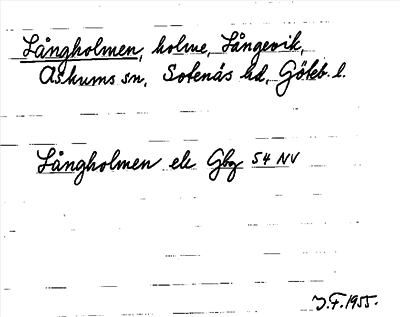 Långholmen, holme, Långevik,
Askums sn, Sotenäs hd, Göteb. l.
Långholmen ek Gbg 54 NV
J.F. 1955.